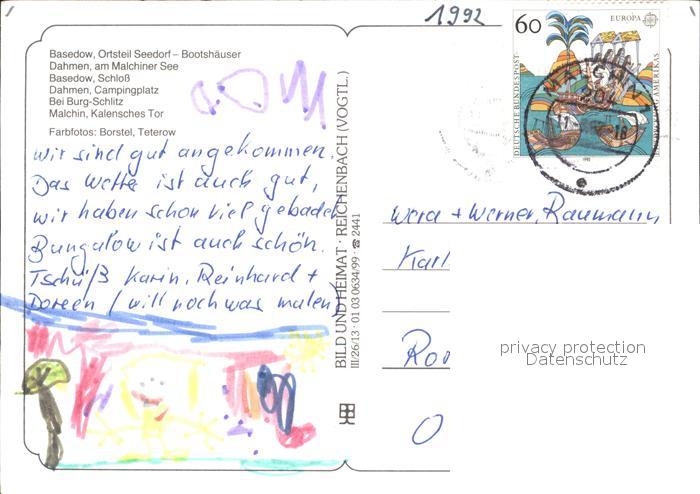 1992
Basedow, Ortsteil Seedorf – Bootshäuser
Dahmen, am Malchiner See
Basedow, Schloß
Dahmen, Campingplatz
Bei Burg-Schlitz
Malchin, Kalensches Tor
Farbfotos: Borstel, Teterow
60
EUROPA
DEUTSCHE BUNDESPOST
MALCHIN
wir sind gut angekommen.
Das Wetter ist auch gut,
wir haben schon viel gebadet
Bungalow ist auch schön.
Tschüß Karin, Reinhard +
Doreen (will noch was malen)
BILD UND HEIMAT · REICHENBACH (VOGTL.)
III/26/13 · 01 03 0634/99 · ☎ 2441
Wera + Werner Raumann
Karl
privacy protection
Datenschutz
O